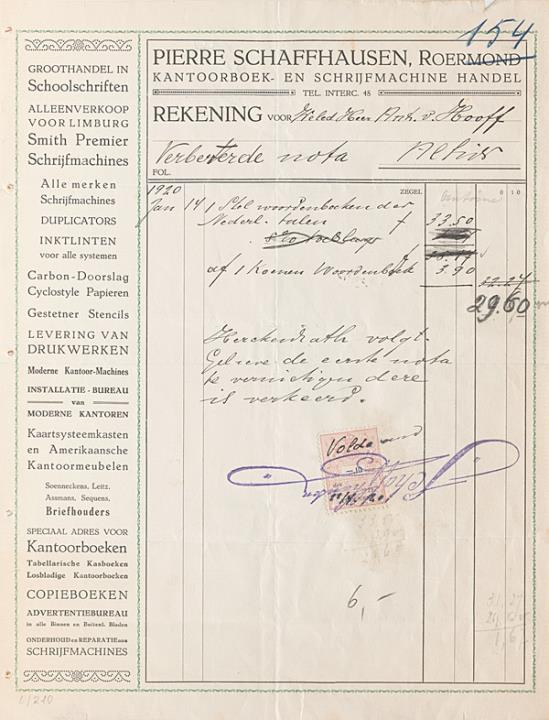 154
PIERRE SCHAFFHAUSEN, ROERMOND
KANTOORBOEK- EN SCHRIJFMACHINE HANDEL
TEL. INTERC. 48
REKENING VOOR Heer Ant. v. Hooff
Verbeterde nota
FOL.
ZEGEL
1920
Jan 14 1 Stel woordenboeken der
Nederl. talen f 33.50
af 1 Koenen Woordenboek 3.90
29.60
Herckenrath volgt.
Gelieve de eerste nota
te vernietigen deze
is verkeerd.
Voldaan
6,-
GROOTHANDEL IN
Schoolschriften
ALLEENVERKOOP
VOOR LIMBURG
Smith Premier
Schrijfmachines
Alle merken
Schrijfmachines
DUPLICATORS
INKTLINTEN
voor alle systemen
Carbon-Doorslag
Cyclostyle Papieren
Gestetner Stencils
LEVERING VAN
DRUKWERKEN
Moderne Kantoor-Machines
INSTALLATIE-BUREAU
van
MODERNE KANTOREN
Kaartsysteemkasten
en Amerikaansche
Kantoormeubelen
Soenneckens, Leitz,
Assmans, Sequens,
Briefhouders
SPECIAAL ADRES VOOR
Kantoorboeken
Tabellarische Kasboeken
Losbladige Kantoorboeken
COPIEBOEKEN
ADVERTENTIEBUREAU
in alle Binnen en Buitenl. Bladen
ONDERHOUD en REPARATIE van
SCHRIJFMACHINES